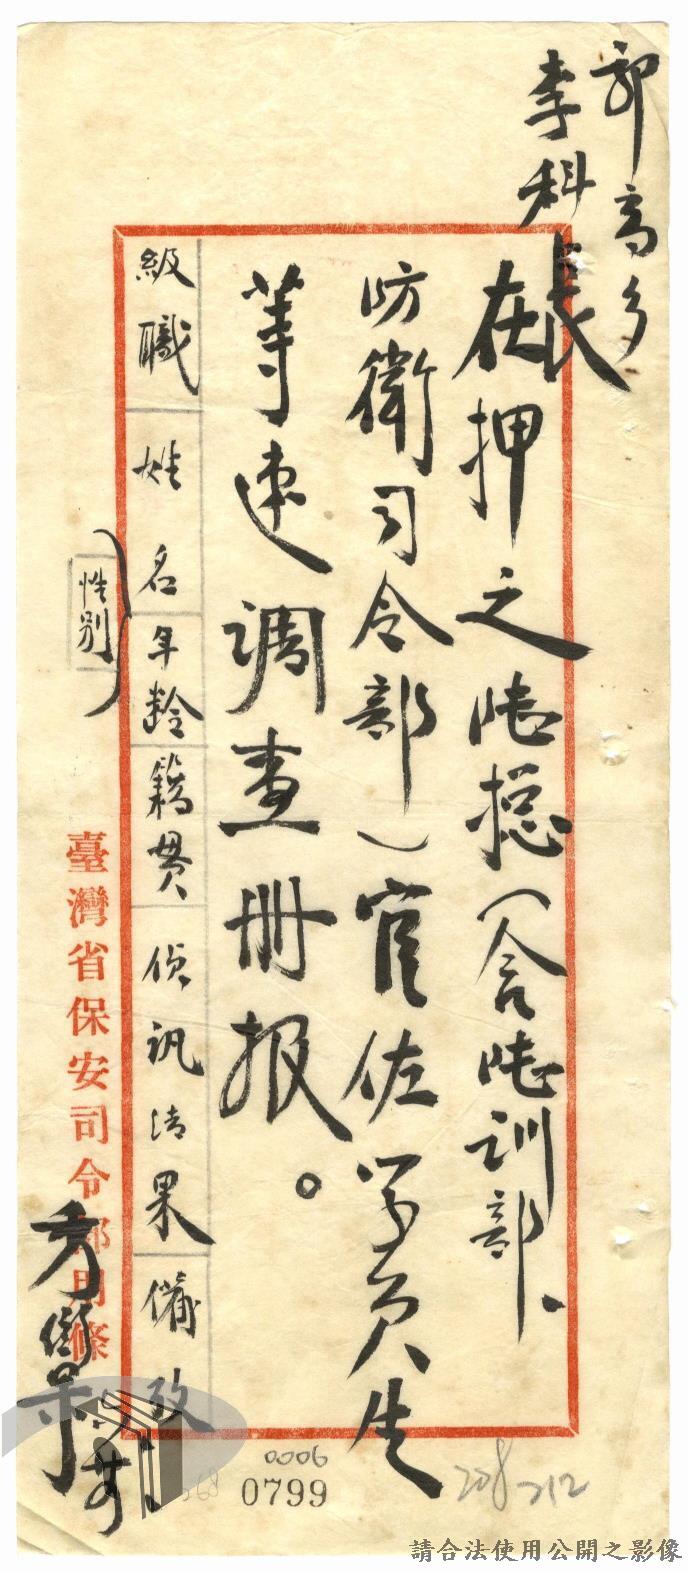 郭高參
李科長
在押之陸總（含陸訓部、
防衛司令部）官佐学員生
等速調查冊报。
級職
姓名
年齡
籍貫
偵訊結果
備攷
性别
臺灣省保安司令部用條
0006
0799
268
208
212
請合法使用公開之影像